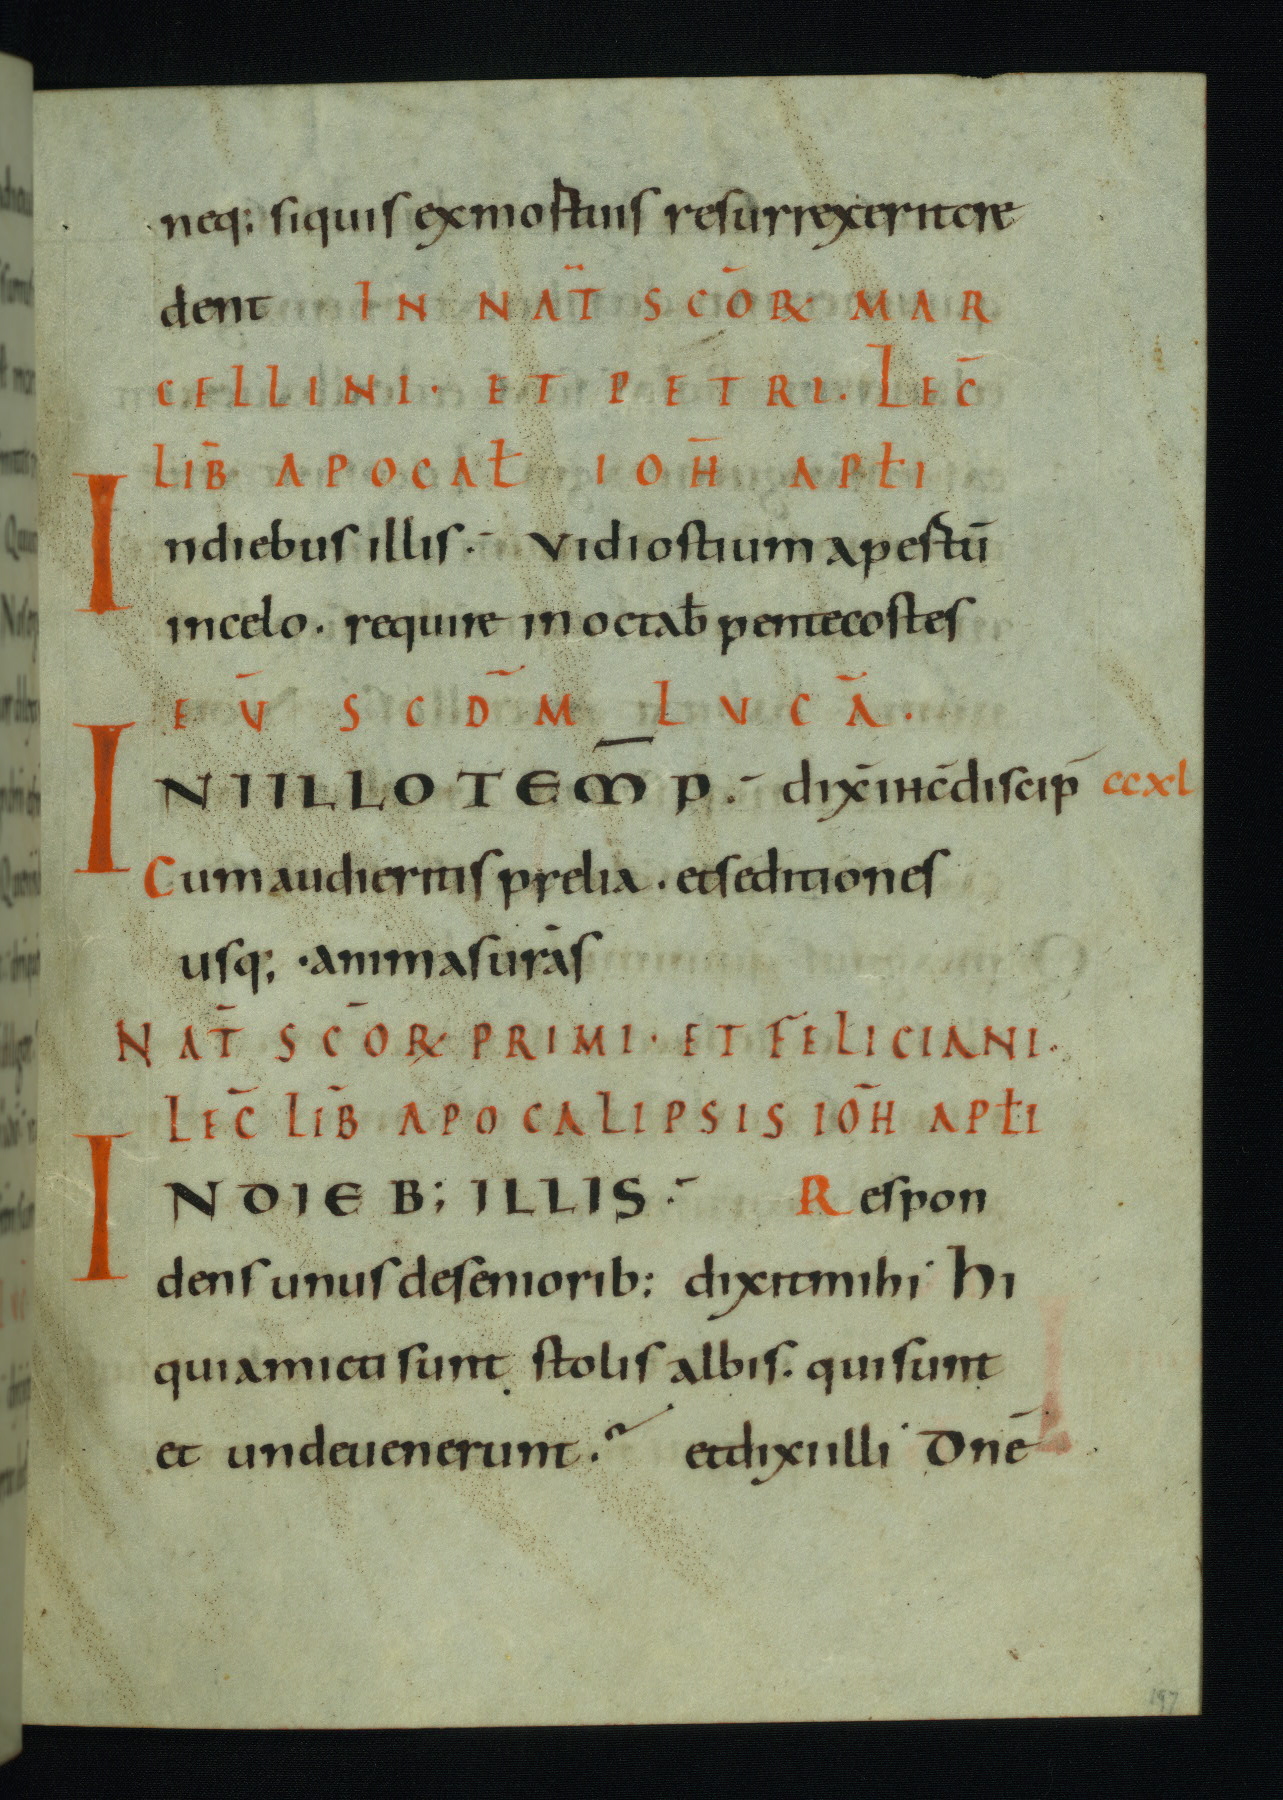 neq; siquis exmortuis resurrexeritcre
dent IN NAT̄ SCŌR MAR
CELLINI · ET PETRI. LEC̄
LIB̄ APOCAŁ IOH̄ APŁI
Indiebus illis. Vidi ostium apertū
incelo. require in octab̄ pentecostes
EV̄ SCD̄M LVCĀ.
INIILLO TEM̄P. dix̄ ih̄c discip̄ ccxl
Cum audieritis prelia. et seditiones
usq; · animas ur̄as
NAT̄ SCŌR PRIMI · ET FELICIANI.
LEC̄ LIB̄ APOCALIPSIS IOH̄ APŁI
INDIEB; ILLIS. Respon
dens unus deseniorib; dixit mihi hi
qui amicti sunt stolis albis. qui sunt
et undeuenerunt. et dixi illi Dnē
197